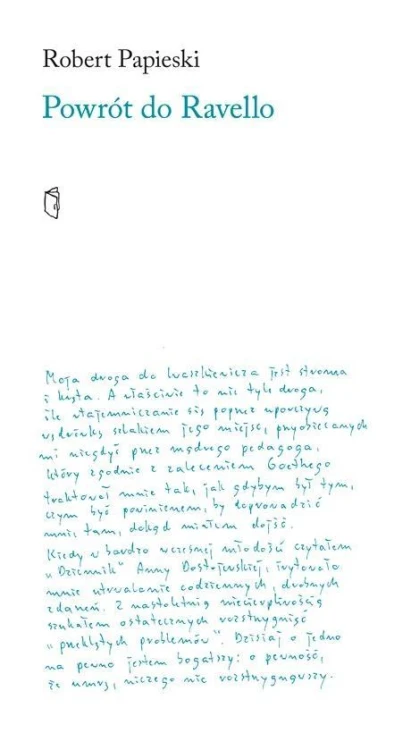 Robert Papieski
Powrót do Ravello
Moja droga do Iwaszkiewicza jest stroma
i kręta. A właściwie to nie tyle droga,
ile wtajemniczanie się poprzez uporczywą
wędrówkę szlakiem jego miejsc, przyobiecanych
mi niegdyś przez mądrego pedagoga,
który zgodnie z zaleceniem Goethego
traktował mnie tak, jak gdybym był tym,
czym być powinienem, by doprowadzić
mnie tam, dokąd miałem dojść.
Kiedy w bardzo wczesnej młodości czytałem
"Dziennik" Anny Dostojewskiej, irytowało
mnie utrwalanie codziennych, drobnych
zdarzeń. Z nastoletnią niecierpliwością
szukałem ostatecznych rozstrzygnięć
"przeklętych problemów". Dzisiaj o jedno
na pewno jestem bogatszy: o pewność,
że umrę, niczego nie rozstrzygnąwszy.